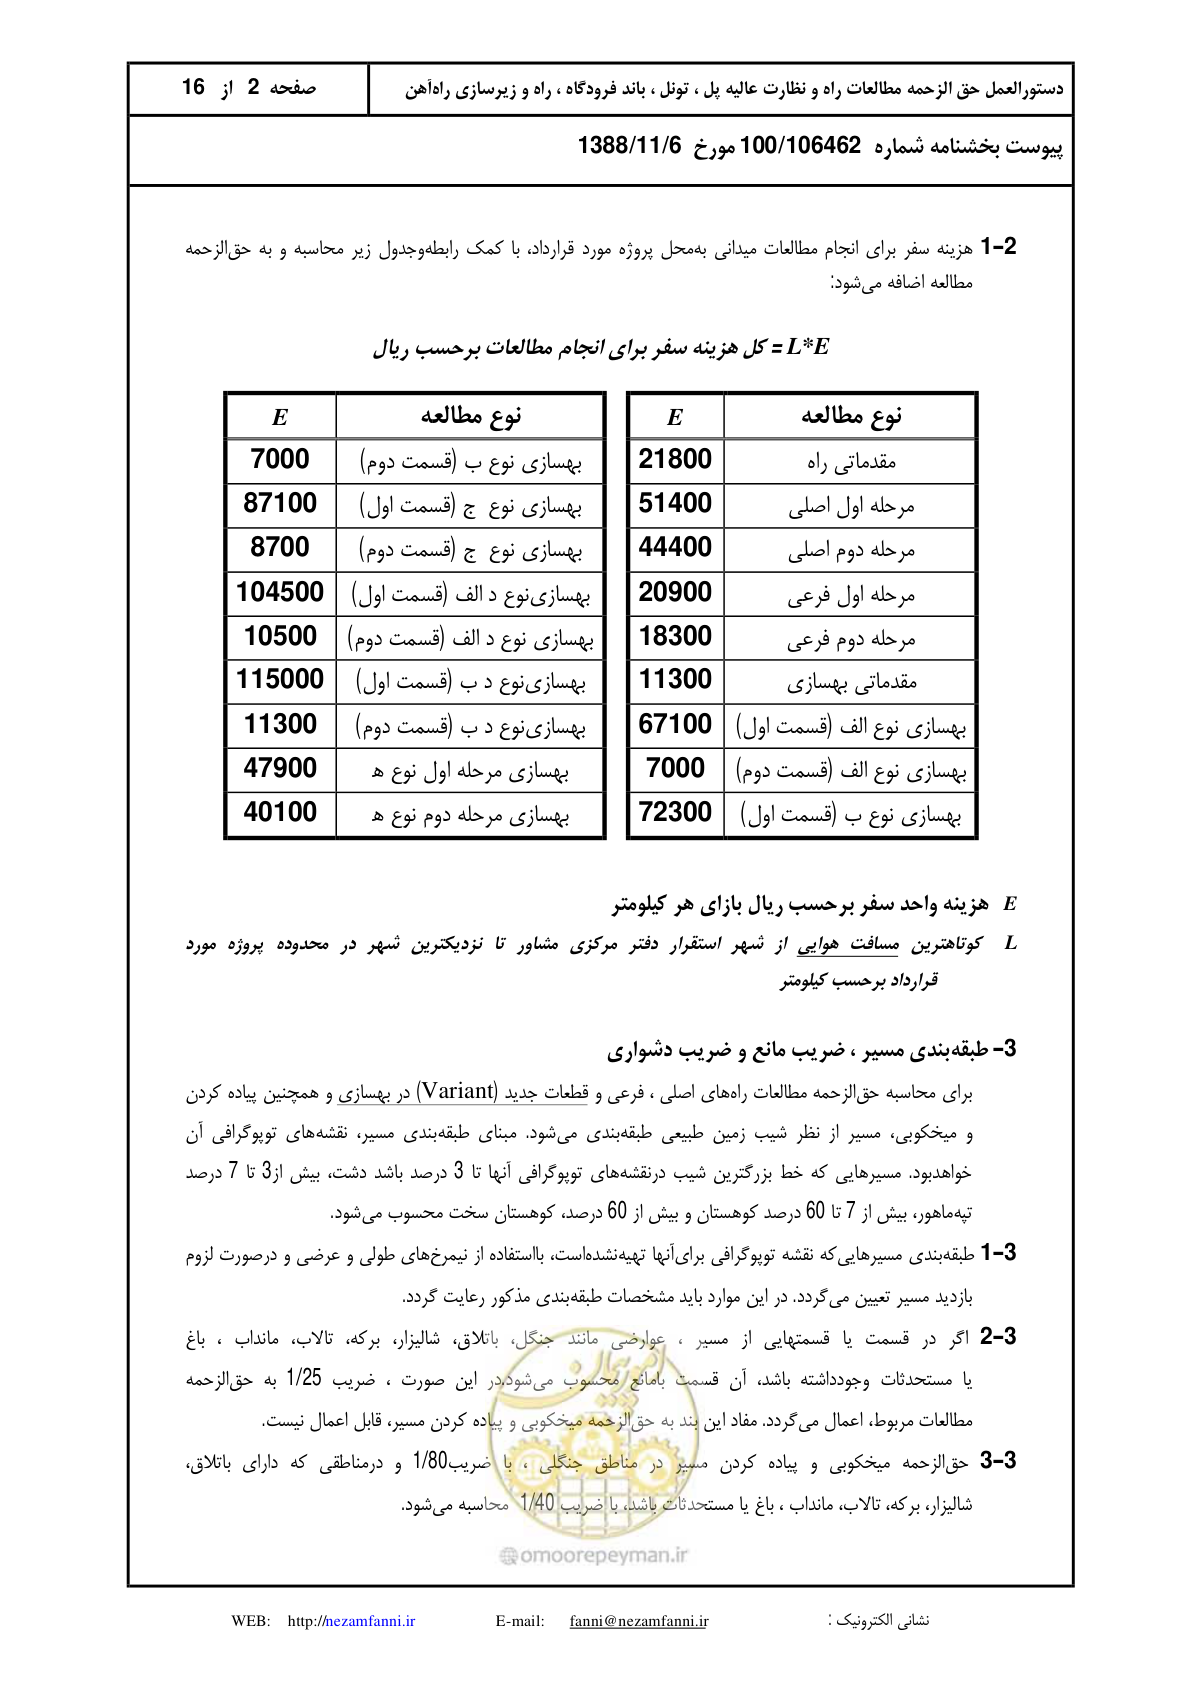 دستورالعمل حق الزحمه مطالعات راه و نظارت عالیه پل ، تونل ، باند فرودگاه ، راه و زیرسازی راه‌آهن
صفحه 2 از 16
پیوست بخشنامه شماره 100/106462 مورخ 1388/11/6
1-2 هزینه سفر برای انجام مطالعات میدانی به‌محل پروژه مورد قرارداد، با کمک رابطه‌وجدول زیر محاسبه و به حق‌الزحمه
مطالعه اضافه می‌شود:
L*E = کل هزینه سفر برای انجام مطالعات برحسب ریال
نوع مطالعه E نوع مطالعه E
مقدماتی راه 21800 بهسازی نوع ب (قسمت دوم) 7000
مرحله اول اصلی 51400 بهسازی نوع ج (قسمت اول) 87100
مرحله دوم اصلی 44400 بهسازی نوع ج (قسمت دوم) 8700
مرحله اول فرعی 20900 بهسازی‌نوع د الف (قسمت اول) 104500
مرحله دوم فرعی 18300 بهسازی نوع د الف (قسمت دوم) 10500
مقدماتی بهسازی 11300 بهسازی‌نوع د ب (قسمت اول) 115000
بهسازی نوع الف (قسمت اول) 67100 بهسازی‌نوع د ب (قسمت دوم) 11300
بهسازی نوع الف (قسمت دوم) 7000 بهسازی مرحله اول نوع ه 47900
بهسازی نوع ب (قسمت اول) 72300 بهسازی مرحله دوم نوع ه 40100
E هزینه واحد سفر برحسب ریال بازای هر کیلومتر
L کوتاهترین مسافت هوایی از شهر استقرار دفتر مرکزی مشاور تا نزدیکترین شهر در محدوده پروژه مورد
قرارداد برحسب کیلومتر
3- طبقه‌بندی مسیر ، ضریب مانع و ضریب دشواری
برای محاسبه حق‌الزحمه مطالعات راه‌های اصلی ، فرعی و قطعات جدید (Variant) در بهسازی و همچنین پیاده کردن
و میخکوبی، مسیر از نظر شیب زمین طبیعی طبقه‌بندی می‌شود. مبنای طبقه‌بندی مسیر، نقشه‌های توپوگرافی آن
خواهدبود. مسیرهایی که خط بزرگترین شیب درنقشه‌های توپوگرافی آنها تا 3 درصد باشد دشت، بیش از3 تا 7 درصد
تپه‌ماهور، بیش از 7 تا 60 درصد کوهستان و بیش از 60 درصد، کوهستان سخت محسوب می‌شود.
1-3 طبقه‌بندی مسیرهایی‌که نقشه توپوگرافی برای‌آنها تهیه‌نشده‌است، بااستفاده از نیمرخ‌های طولی و عرضی و درصورت لزوم
بازدید مسیر تعیین می‌گردد. در این موارد باید مشخصات طبقه‌بندی مذکور رعایت گردد.
2-3 اگر در قسمت یا قسمتهایی از مسیر ، عوارضی مانند جنگل، باتلاق، شالیزار، برکه، تالاب، مانداب ، باغ
یا مستحدثات وجودداشته باشد، آن قسمت بامانع محسوب می‌شود.در این صورت ، ضریب 1/25 به حق‌الزحمه
مطالعات مربوط، اعمال می‌گردد. مفاد این بند به حق‌الزحمه میخکوبی و پیاده کردن مسیر، قابل اعمال نیست.
3-3 حق‌الزحمه میخکوبی و پیاده کردن مسیر در مناطق جنگلی ، با ضریب1/80 و درمناطقی که دارای باتلاق،
شالیزار، برکه، تالاب، مانداب ، باغ یا مستحدثات باشد، با ضریب 1/40 محاسبه می‌شود.
امور پیمان
@omoorepeyman.ir
نشانی الکترونیک : E-mail: fanni@nezamfanni.ir WEB: http://nezamfanni.ir